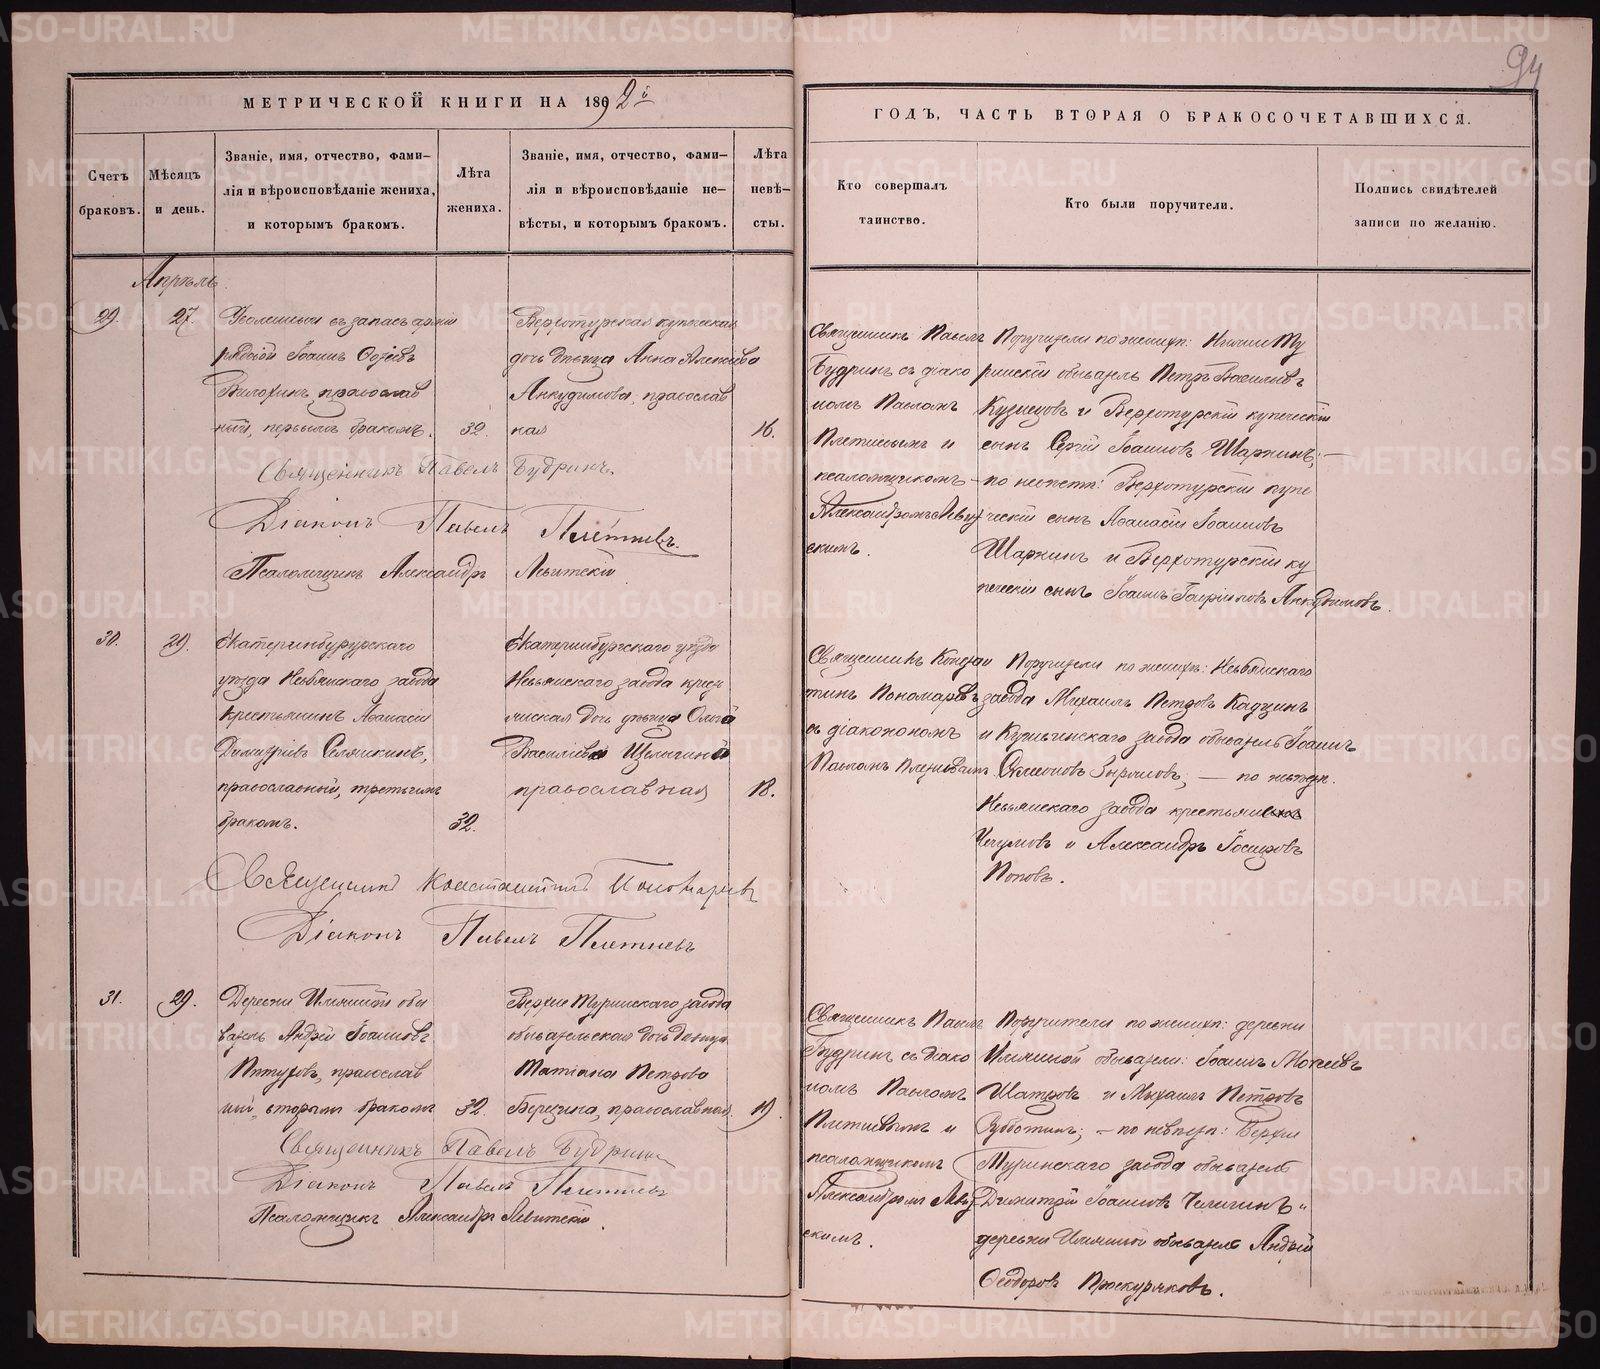 94
МЕТРИЧЕСКОЙ КНИГИ НА 1892й
ГОДЪ, ЧАСТЬ ВТОРАЯ О БРАКОСОЧЕТАВШИХСЯ.
Счетъ браковъ.
Мѣсяцъ и день.
Званіе, имя, отчество, фами-
лія и вѣроисповѣданіе жениха,
и которымъ бракомъ.
Лѣта жениха.
Званіе, имя, отчество, фами-
лія и вѣроисповѣданіе не-
вѣсты, и которымъ бракомъ.
Лѣта невѣ-
сты.
Кто совершалъ
таинство.
Кто были поручители.
Подпись свидѣтелей
записи по желанію.
Апрѣль
29. 27.
Уволенный въ запасъ арміи
рядовой Іоаннъ
православ
ный, первымъ бракомъ.
32.
Верхотурская купеческая
дочь дѣвица Анна Алексѣева
Анкудинова, православ
ная
16.
Священникъ Павелъ
Будринъ съ діако
номъ Павломъ
Плетневымъ и
псаломщикомъ
Александромъ Левит
скимъ.
Поручители по женихѣ: Нижне Ту
ринскій обыватель Петръ Васильевъ
Кузнецовъ и Верхотурскій купеческій
сынъ Сергій Іоанновъ Шаркинъ; —
по невѣстѣ: Верхотурскій купе
ческій сынъ Афанасій Іоанновъ
Шаркинъ и Верхотурскій ку
печескій сынъ Іоаннъ Гавріиловъ Анкудиновъ.
Священникъ Павелъ Будринъ.
Діаконъ Павелъ Плетневъ.
Псаломщикъ Александръ Левитскій
30. 29.
Екатеринбурурскаго
уѣзда Невьянскаго завода
крестьянинъ Афанасій
Димитріевъ Селянкинъ,
православный, третьимъ
бракомъ.
32.
Екатеринбургскаго уѣзда
Невьянскаго завода крес
янская дочь дѣвица Ольга
Василіева
православная
18.
Священникъ Констан
тинъ Пономаревъ
съ діакономъ
Павломъ Плетневымъ
Поручители по женихѣ: Невьянскаго
завода Михаилъ Петровъ Кадцинъ
и Кушвинскаго завода обыватель Іоаннъ
Симеоновъ Зыряновъ, — по невѣстѣ
Невьянскаго завода
и Александръ Іосифовъ
Поповъ.
Священникъ Константинъ Пономаревъ
Діаконъ Павелъ Плетневъ
31. 29.
Деревни Именной обы
ватель Андрей Іоанновъ
Питуховъ, православ
ный, вторымъ бракомъ
32.
Верхне Туринскаго завода
обывательская дочь дѣвица
Татіана Петрова
Березина, православная
19.
Священникъ Павелъ
Будринъ съ діако
номъ Павломъ
Плетневымъ и
псаломщикомъ
Александромъ Левит
скимъ.
Поручители по женихѣ: деревни
Именной обыватели: Іоаннъ Мокеевъ
Шатровъ и Михаилъ Петровъ
Субботинъ; — по невѣстѣ: Верхне
Туринскаго завода обыватель
Димитрій Іоанновъ Челыгинъ и
деревни Именной обыватель Андрей
Ѳеодоровъ Проскуряковъ.
Священникъ Павелъ Будринъ
Діаконъ Павелъ Плетневъ
Псаломщикъ Александръ Левитскій.
METRIKI.GASO-URAL.RU